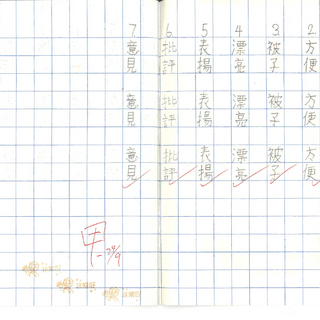 2. 方便 方便 方便
3. 被子 被子 被子
4. 漂亮 漂亮 漂亮
5. 表揚 表揚 表揚
6. 批評 批評 批評
7. 意見 意見 意見
甲 24/9